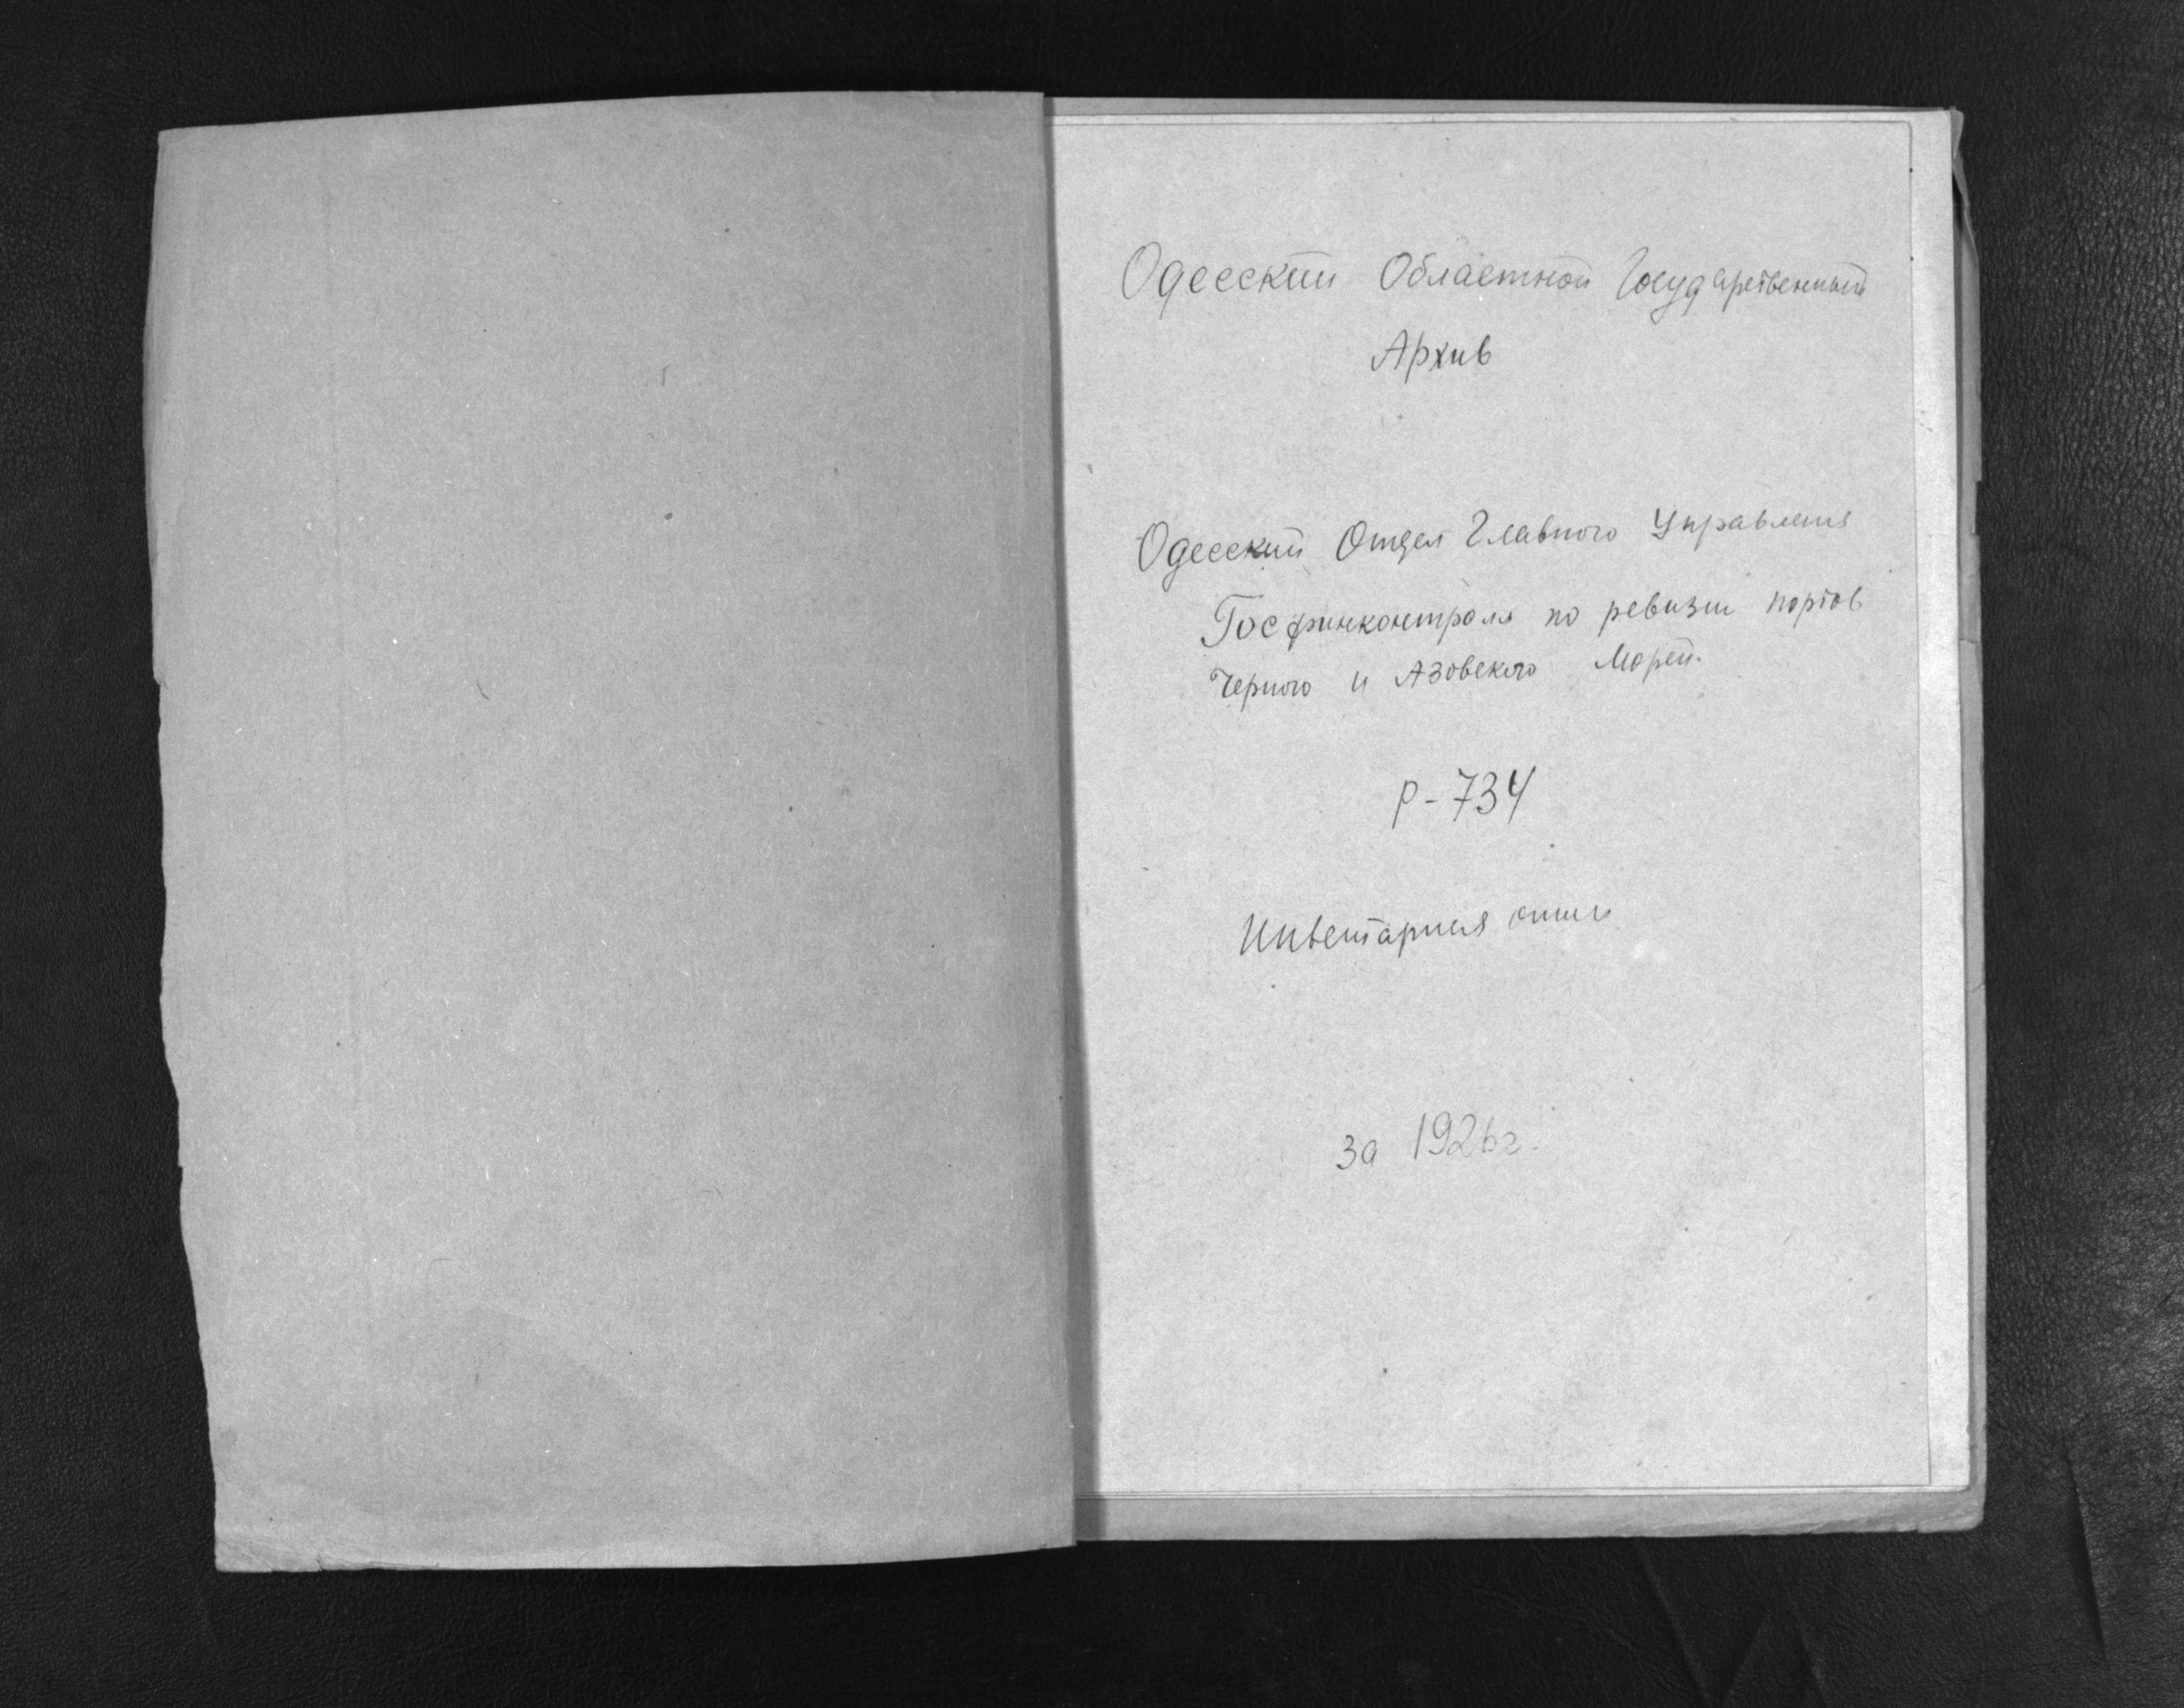 Одесский Областной Государственный
Архив
Одесский Отдел Главного Управления
Госфинконтроля по ревизии портов
Черного и Азовского Морей.
Р-734
Инвентарная опись
за 1926г.